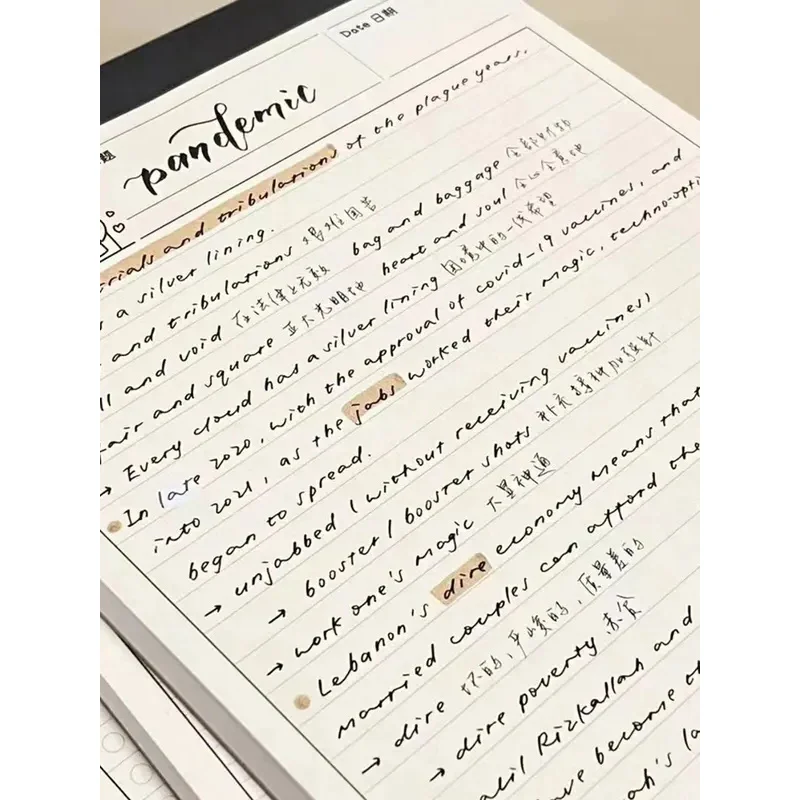 Date 日期
题
pandemic
trials and tribulations of the plague years.
a silver lining.
and tribulations 艰难困苦
and void 在法律上无效 bag and baggage 全部财物
fair and square 正大光明地 heart and soul 全心全意地
→ Every cloud has a silver lining 困境中的一线希望
In late 2020, with the approval of covid-19 vaccines, and
into 2021, as the jabs worked their magic, techno-opti
began to spread.
→ unjabbed (without receiving vaccines)
→ booster / booster shots 补充接种加强针
→ work one's magic 大显神通
Lebanon's dire economy means that
married couples can afford the
→ dire 坏的，严峻的，质量差的
→ dire poverty 赤贫
alil Rizkallah and
ave become t
ah's la